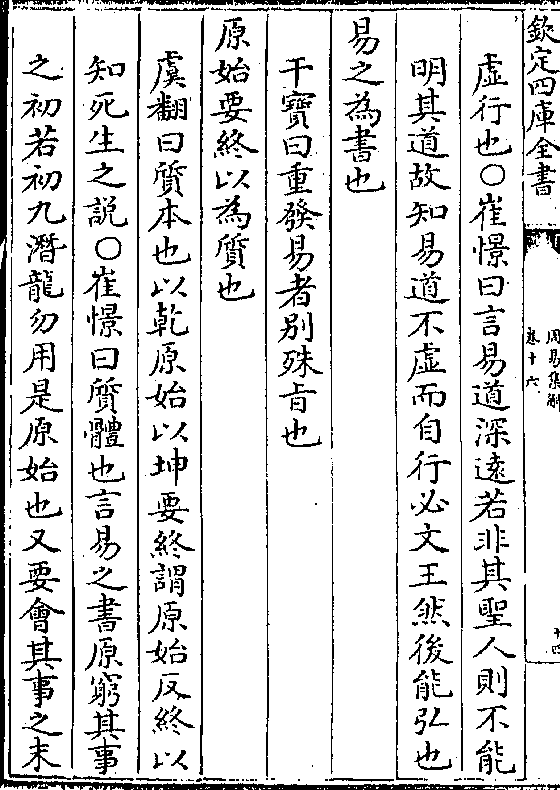 欽定四庫全書
周易集解
卷十六
十四
虛行也○崔憬曰言易道深遠若非其聖人則不能
明其道故知易道不虛而自行必文王然後能弘也
易之為書也
干寶曰重發易者别殊旨也
原始要終以為質也
虞翻曰質本也以乾原始以坤要終謂原始反終以
知死生之説○崔憬曰質體也言易之書原窮其事
之初若初九潛龍勿用是原始也又要會其事之末